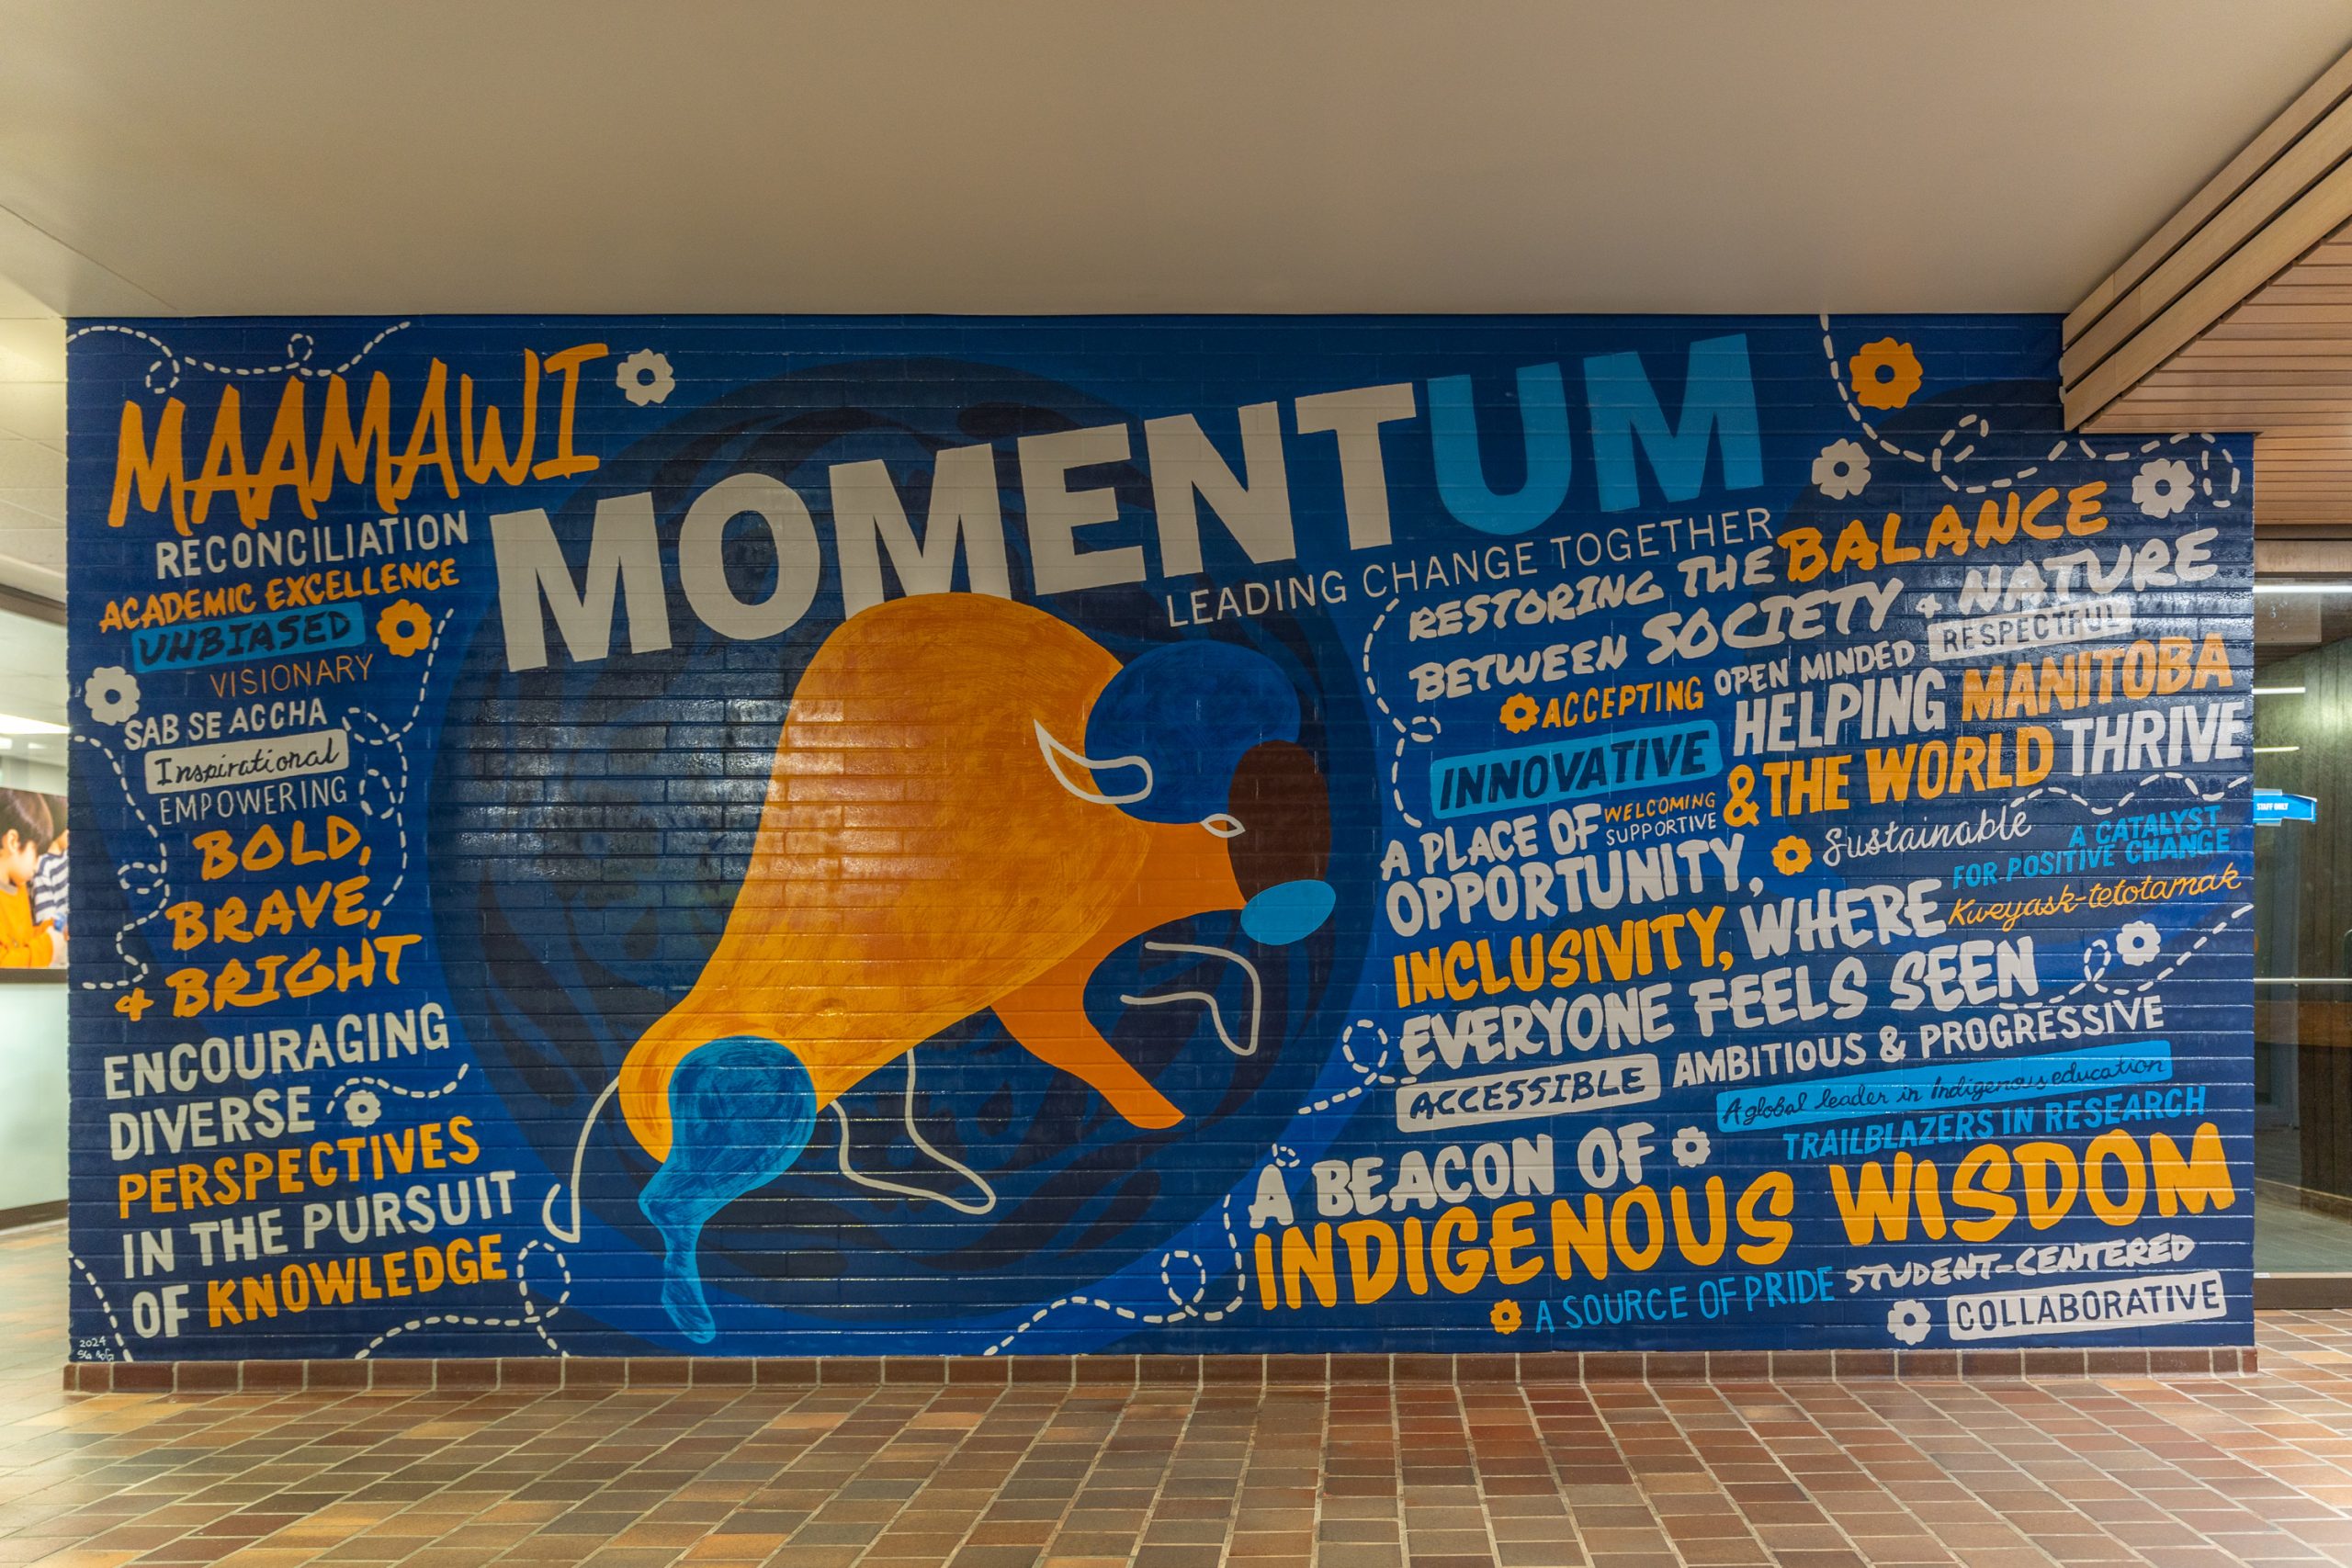 MAAMAWI
RECONCILIATION
ACADEMIC EXCELLENCE
UNBIASED
VISIONARY
SAB SE ACCHA
Inspirational
EMPOWERING
BOLD,
BRAVE,
& BRIGHT
ENCOURAGING
DIVERSE
PERSPECTIVES
IN THE PURSUIT
OF KNOWLEDGE
2024
MOMENTUM
LEADING CHANGE TOGETHER
RESTORING THE BALANCE
BETWEEN SOCIETY & NATURE
ACCEPTING OPEN MINDED RESPECTFUL
INNOVATIVE HELPING MANITOBA
& THE WORLD THRIVE
A PLACE OF WELCOMING
SUPPORTIVE
OPPORTUNITY, Sustainable
A CATALYST
FOR POSITIVE CHANGE
INCLUSIVITY, WHERE Kweyask-tetotamak
EVERYONE FEELS SEEN
ACCESSIBLE AMBITIOUS & PROGRESSIVE
A global leader in Indigenous education
TRAILBLAZERS IN RESEARCH
A BEACON OF
INDIGENOUS WISDOM
A SOURCE OF PRIDE STUDENT-CENTERED
COLLABORATIVE
STAFF ONLY